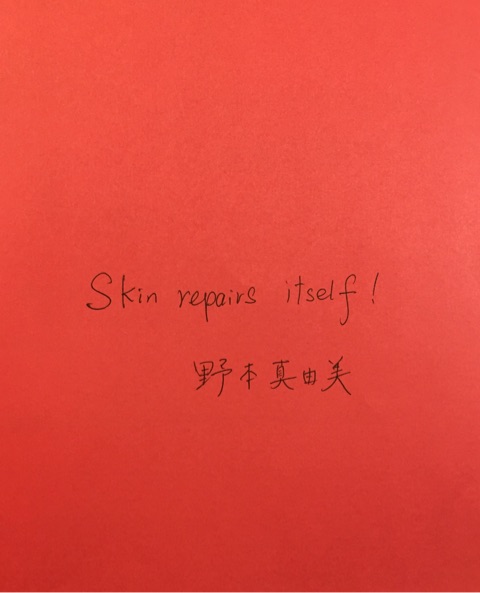 Skin repairs itself!
野本真由美